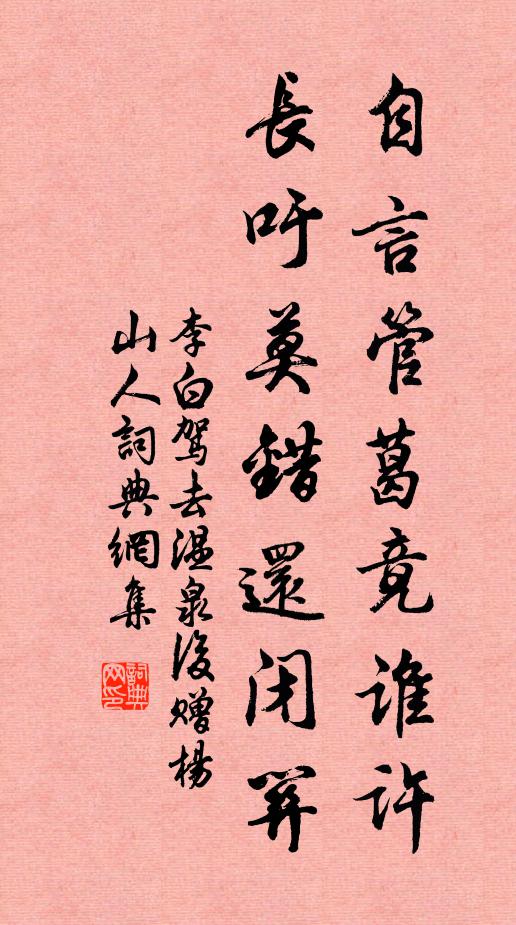 自言管葛竟誰許
長吁莫錯還閉關
李白駕去温泉後贈楊
山人詞典網集
詞典网印